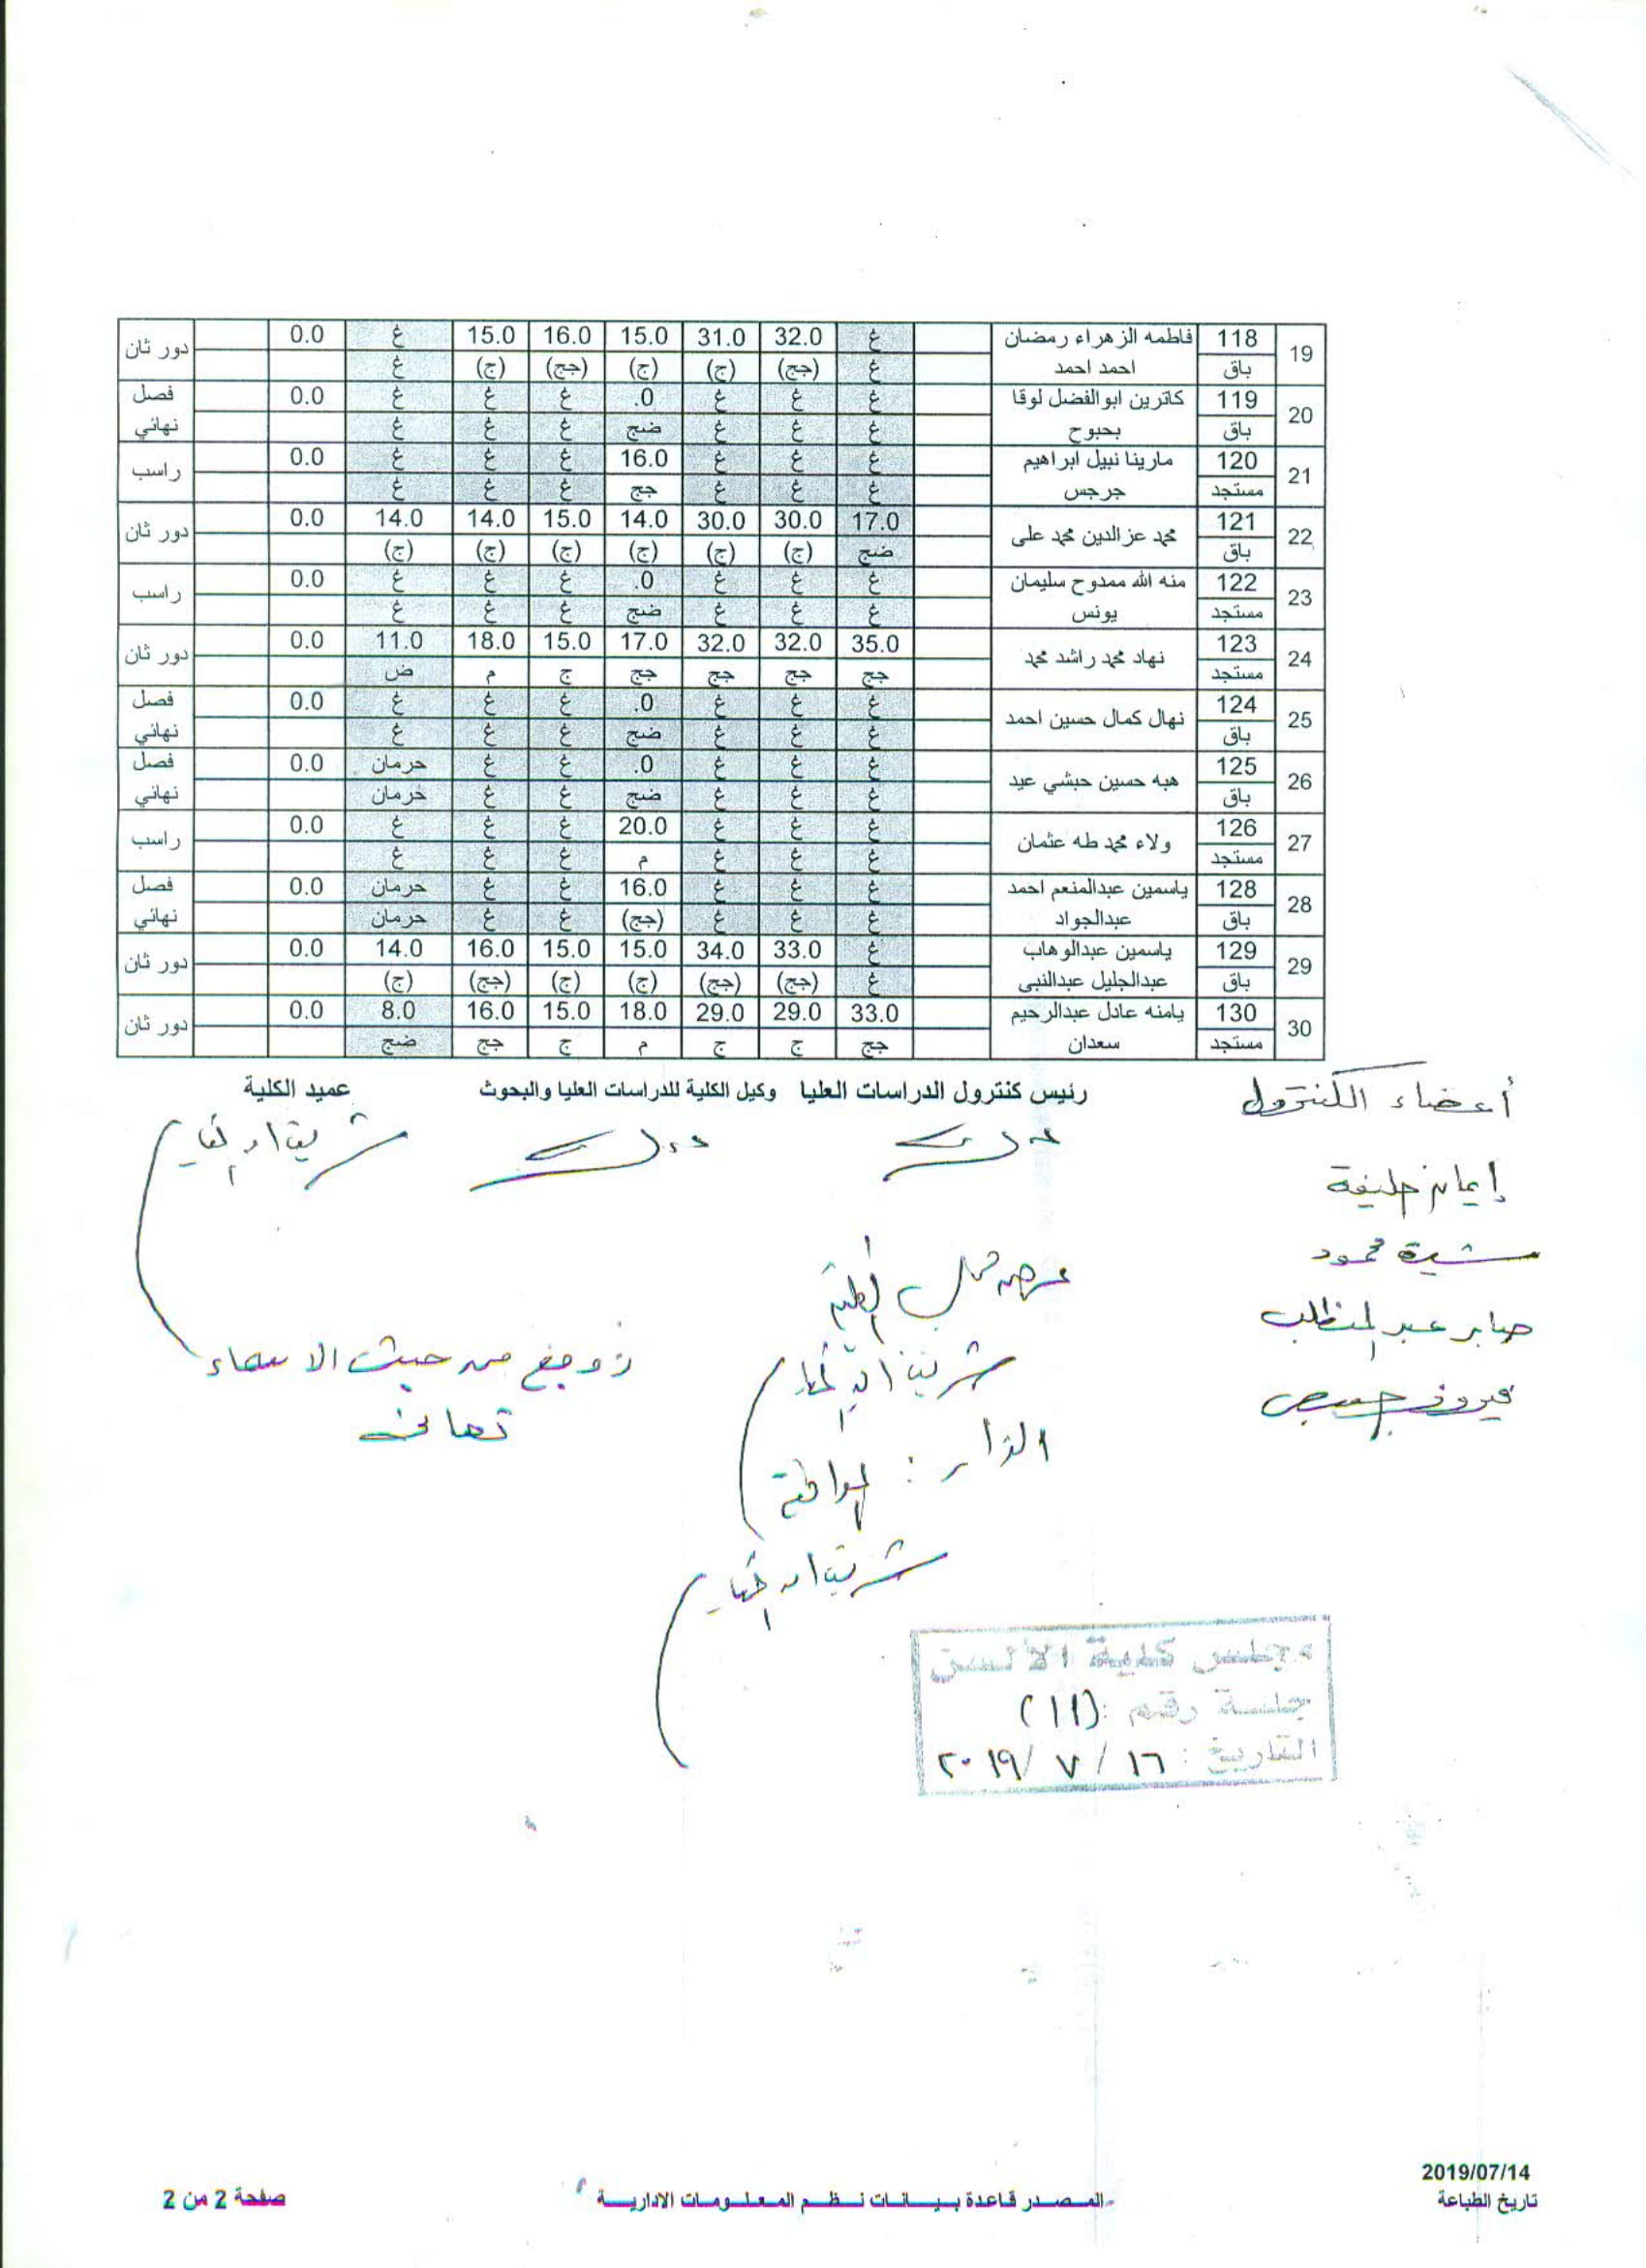 19 118 فاطمه الزهراء رمضان غ 32.0 31.0 15.0 16.0 15.0 غ 0.0 دور ثان
باق احمد احمد غ (جج) (ج) (ج) (جج) (ج) غ
20 119 كاترين ابو الفضل لوقا غ غ غ 0. غ غ غ 0.0 فصل
باق بحبوح غ غ غ ضج غ غ غ نهائي
21 120 مارينا نبيل ابراهيم غ غ غ 16.0 غ غ غ 0.0 راسب
مستجد جرجس غ غ غ جج غ غ غ
22 121 محمد عز الدين محمد على 17.0 30.0 30.0 14.0 15.0 14.0 14.0 0.0 دور ثان
باق ضج (ج) (ج) (ج) (ج) (ج) (ج)
23 122 منه الله ممدوح سليمان غ غ غ 0. غ غ غ 0.0 راسب
مستجد يونس غ غ غ ضج غ غ غ
24 123 نهاد محمد راشد محمد 35.0 32.0 32.0 17.0 15.0 18.0 11.0 0.0 دور ثان
مستجد جج جج جج جج ج م ض
25 124 نهال كمال حسين احمد غ غ غ 0. غ غ غ 0.0 فصل
باق غ غ غ ضج غ غ غ نهائي
26 125 هبه حسين حبشي عيد غ غ غ 0. غ غ حرمان 0.0 فصل
باق غ غ غ ضج غ غ حرمان نهائي
27 126 ولاء محمد طه عثمان غ غ غ 20.0 غ غ غ 0.0 راسب
مستجد غ غ غ م غ غ غ
28 128 ياسمين عبدالمنعم احمد غ غ غ 16.0 غ غ حرمان 0.0 فصل
باق عبدالجواد غ غ غ (جج) غ غ حرمان نهائي
29 129 ياسمين عبدالوهاب غ 33.0 34.0 15.0 15.0 16.0 14.0 0.0 دور ثان
باق عبدالجليل عبدالنبى غ (جج) (جج) (ج) (ج) (جج) (ج)
30 130 يامنه عادل عبدالرحيم 33.0 29.0 29.0 18.0 15.0 16.0 8.0 0.0 دور ثان
مستجد سعدان جج ج ج م ج جج ضج
أعضاء الكنترول رئيس كنترول الدراسات العليا وكيل الكلية للدراسات العليا والبحوث عميد الكلية
إيمان خليفة
محمود
صابر عبد المطلب
من حيث الاسماء
القرار : الموافقة
مجلس كلية الألسن
جلسة رقم : (١١)
التاريخ : ١٦ / ٧ / ٢٠١٩
2019/07/14
تاريخ الطباعة المصدر قاعدة بيانات نظم المعلومات الادارية صفحة 2 من 2